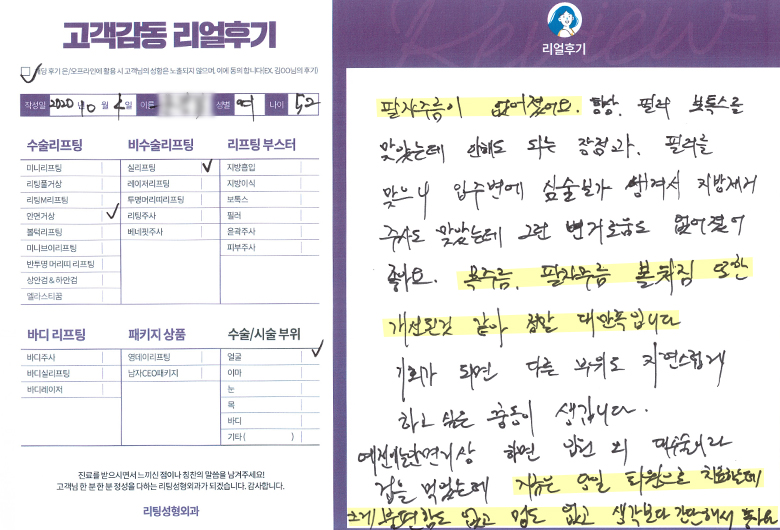 고객감동 리얼후기
해당 후기 온/오프라인에 활용 시 고객님의 성함은 노출되지 않으며, 이에 동의 합니다(EX. 김OO님의 후기)
작성일 2020 년 10 월 일 이름 성별 여 나이 52
수술리프팅
미니리프팅
리팅풀거상
리팅M리프팅
안면거상
볼턱리프팅
미니브이리프팅
반투명 머리띠 리프팅
상안검 & 하안검
엘라스티꿈
비수술리프팅
실리프팅
레이저리프팅
투명머리띠리프팅
리팅주사
베네핏주사
리프팅 부스터
지방흡입
지방이식
보톡스
필러
윤곽주사
피부주사
바디 리프팅
바디주사
바디실리프팅
바디레이저
패키지 상품
영데이리프팅
남자CEO패키지
수술/시술 부위
얼굴
이마
눈
목
바디
기타 ( )
진료를 받으시면서 느끼신 점이나 칭찬의 말씀을 남겨주세요!
고객님 한 분 한 분 정성을 다하는 리팅성형외과가 되겠습니다. 감사합니다.
리팅성형외과
Review
리얼후기
팔자주름이 없어졌어요. 항상 필러 보톡스를
맞았는데 안해도 되는 장점과, 필러를
맞으니 입주변에 심술보가 생겨서 지방제거
주사도 맞았는데 그런 번거로움도 없어졌어
좋아요. 목주름, 팔자주름 볼처짐 또한
개선된것 같아 정말 대만족입니다
기회가 되면 다른 부위도 자연스럽게
하고 싶은 충동이 생깁니다.
예전에는 안면거상 하면 입원 외 대수술이라
겁을 먹었는데 지금은 당일 퇴원으로 치료하는데
크게 불편함도 없고 멍도 없고 생각보다 간단해서 좋아요